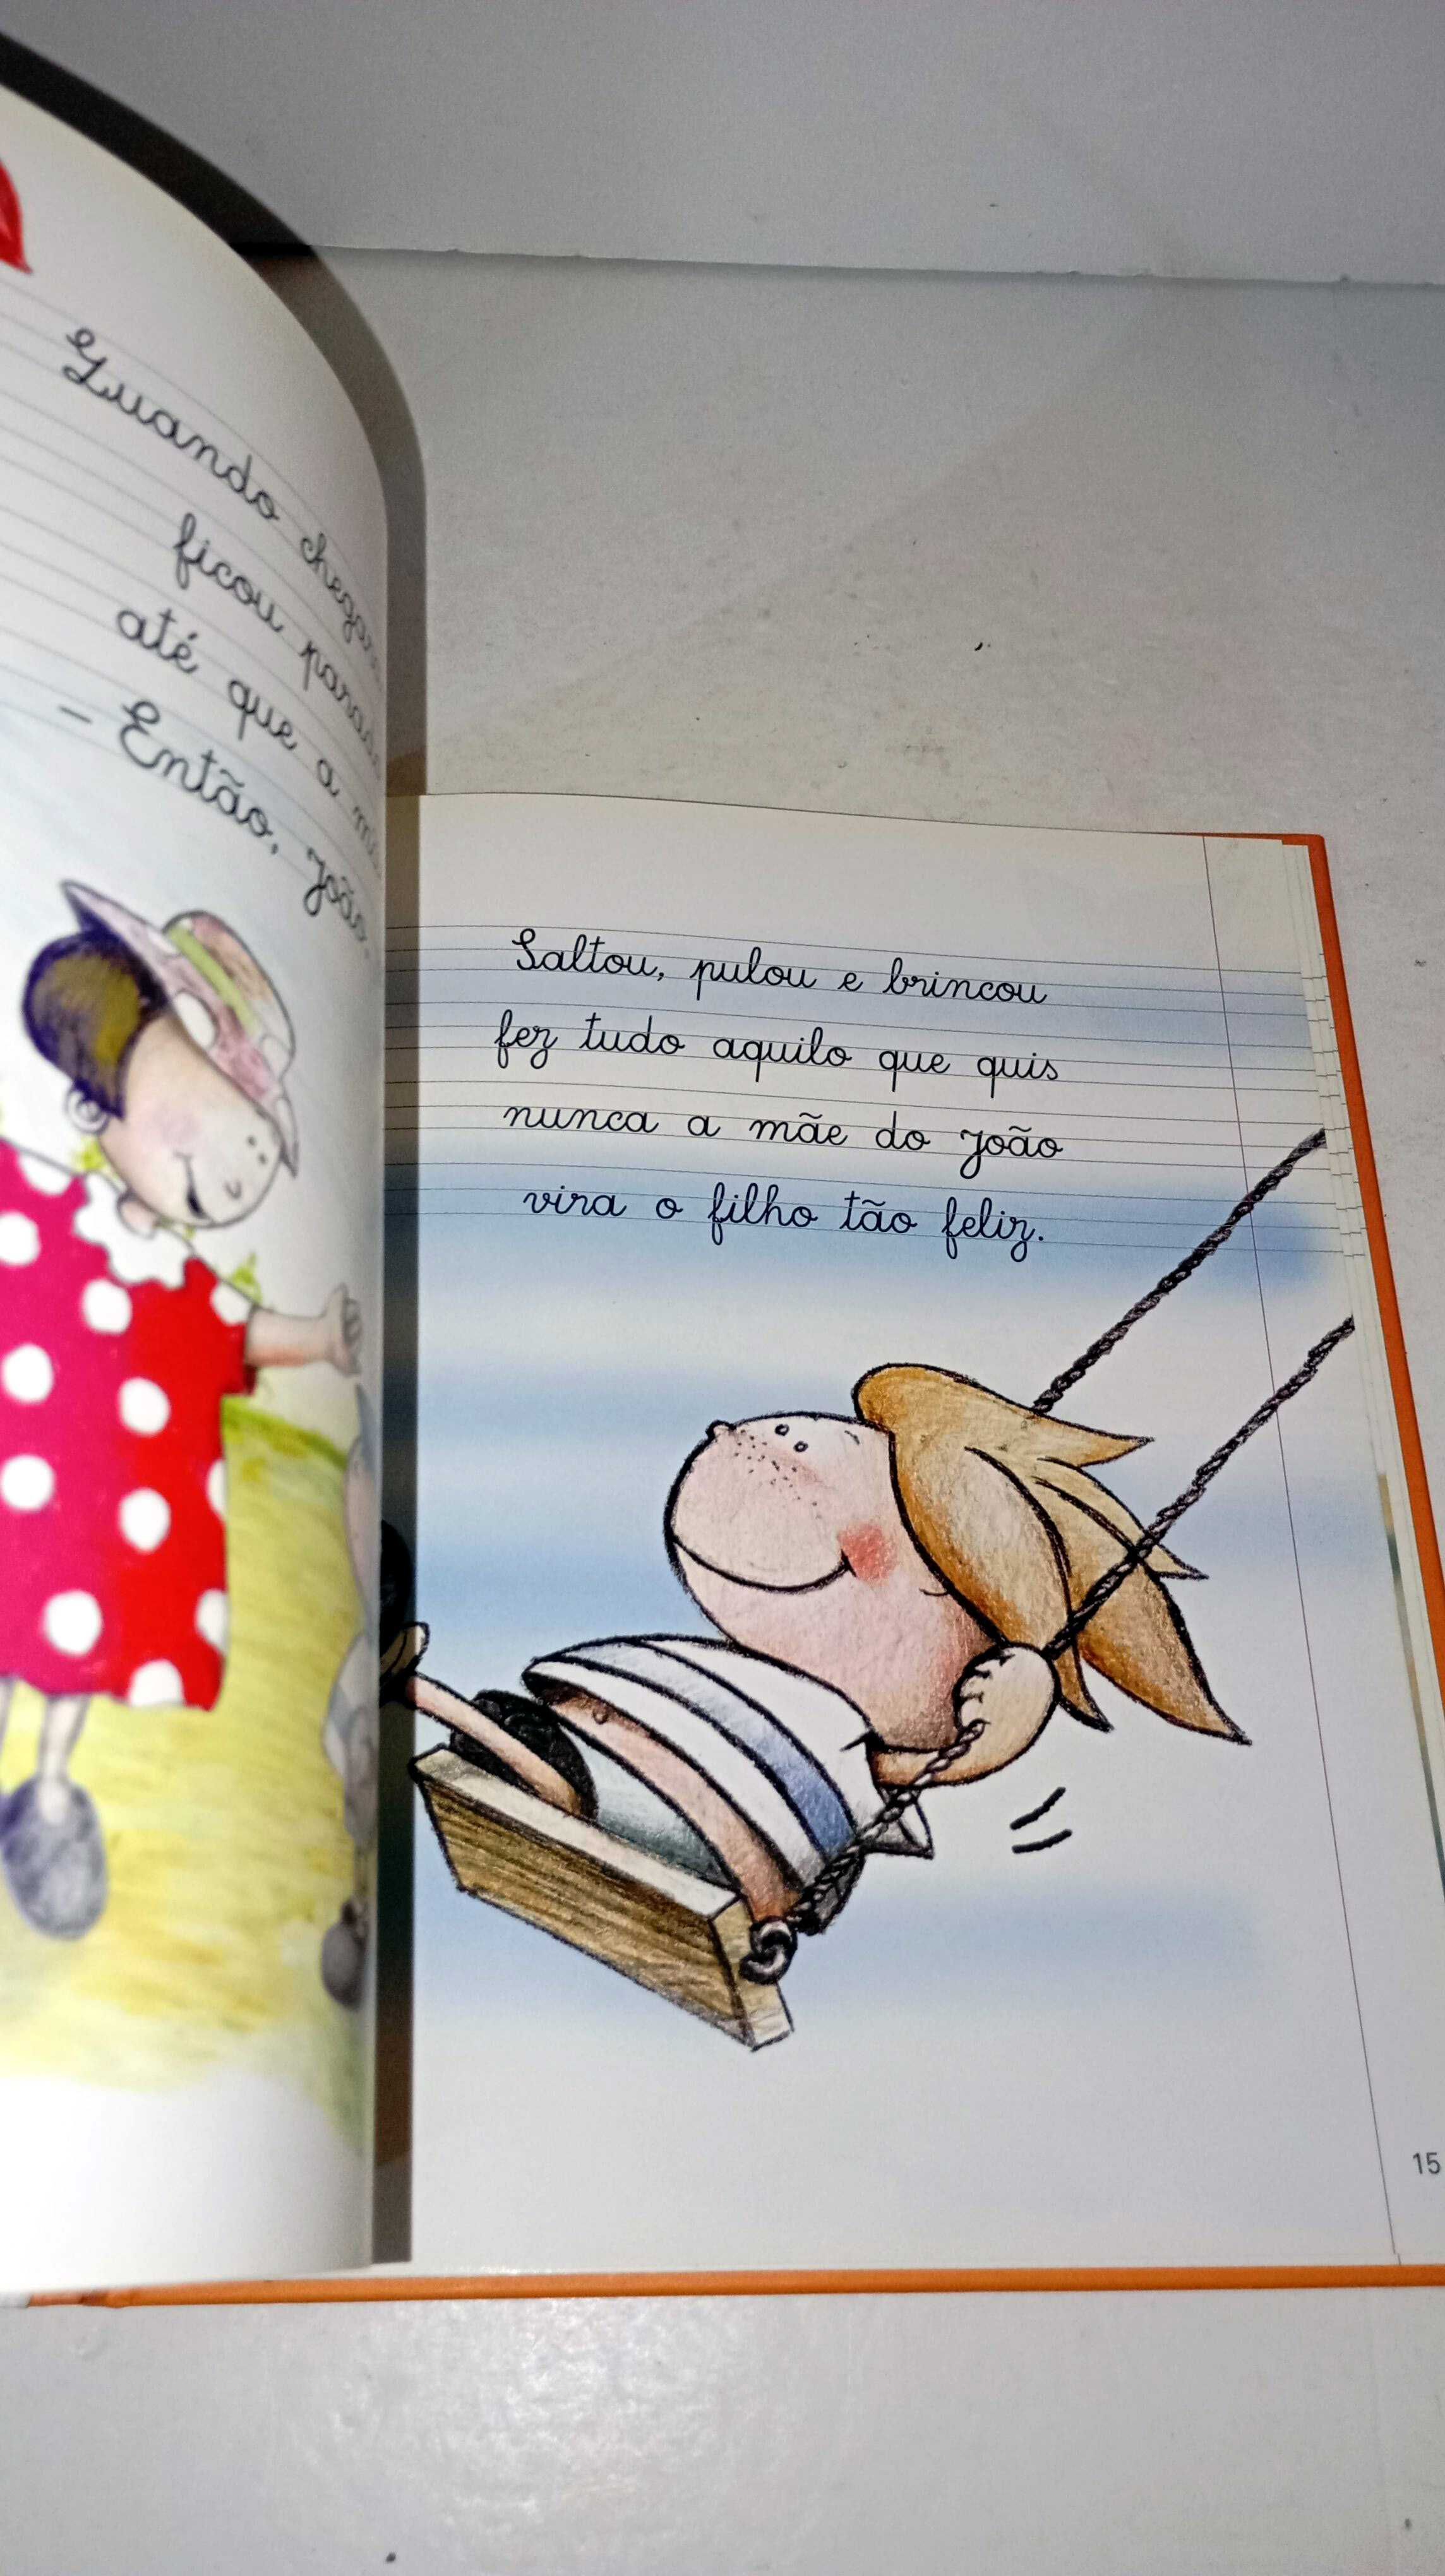 Quando
ficou
até que a
- Então, João
Saltou, pulou e brincou
fez tudo aquilo que quis
nunca a mãe do João
vira o filho tão feliz.
15